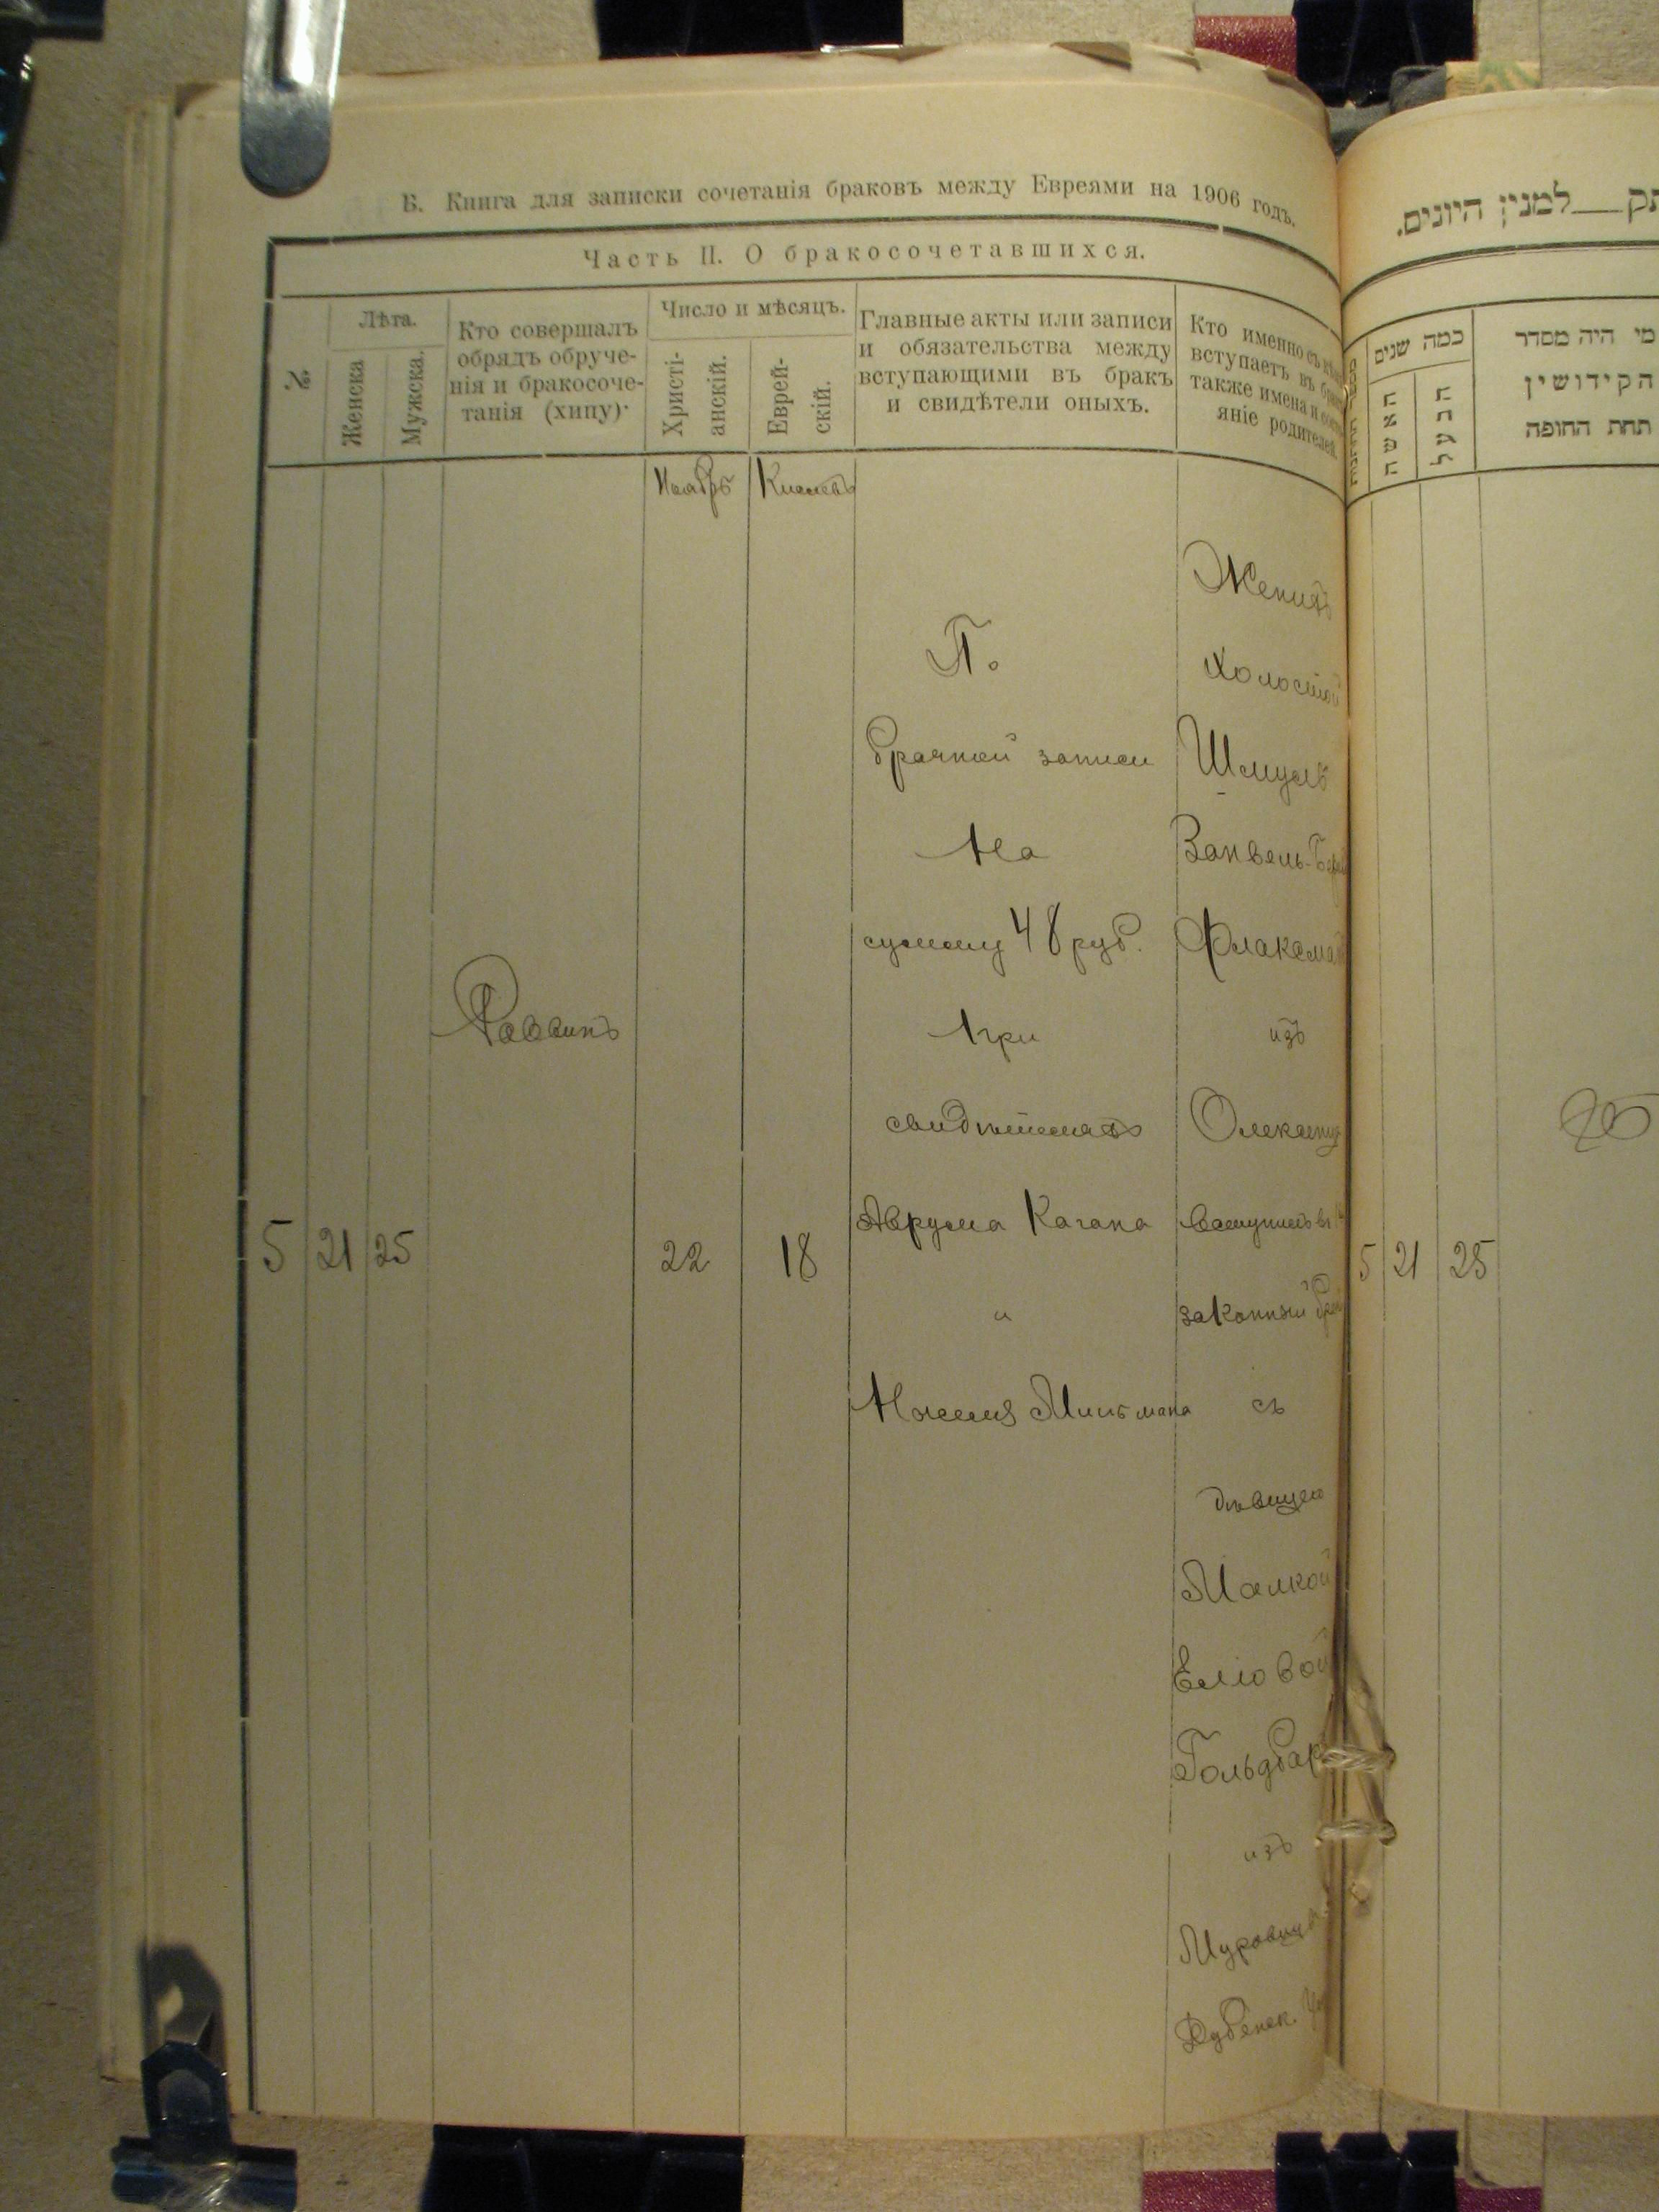 Б. Книга для записки сочетанія браковъ между Евреями на 1906 годъ.
Часть II. О бракосочетавшихся.
№
Лѣта.
Женска
Мужска.
Кто совершалъ
обрядъ обруче-
нія и бракосоче-
танія (хипу)·
Число и мѣсяцъ.
Христі-
анскій.
Еврей-
скій.
Главные акты или записи
и обязательства между
вступающими въ бракъ
и свидѣтели оныхъ.
Кто именно съ
вступаетъ въ
также имена и
яніе родителей.
Ноябрь
Кислевъ
5
21
25
Раввинъ
22
18
По
брачной записи
на
сумму 48 руб.
при
свидѣтеляхъ
Аврума Кагана
и
Мильмана
Женихъ
холостой
Шмуль
Занвель-
из
вступилъ въ
законный
съ
дѣвицею
Малкой
Еліовой
изъ
למנין היונים.
כמה שנים
האשה
הבעל
מי היה מסדר
הקידושין
תחת החופה
5
21
25